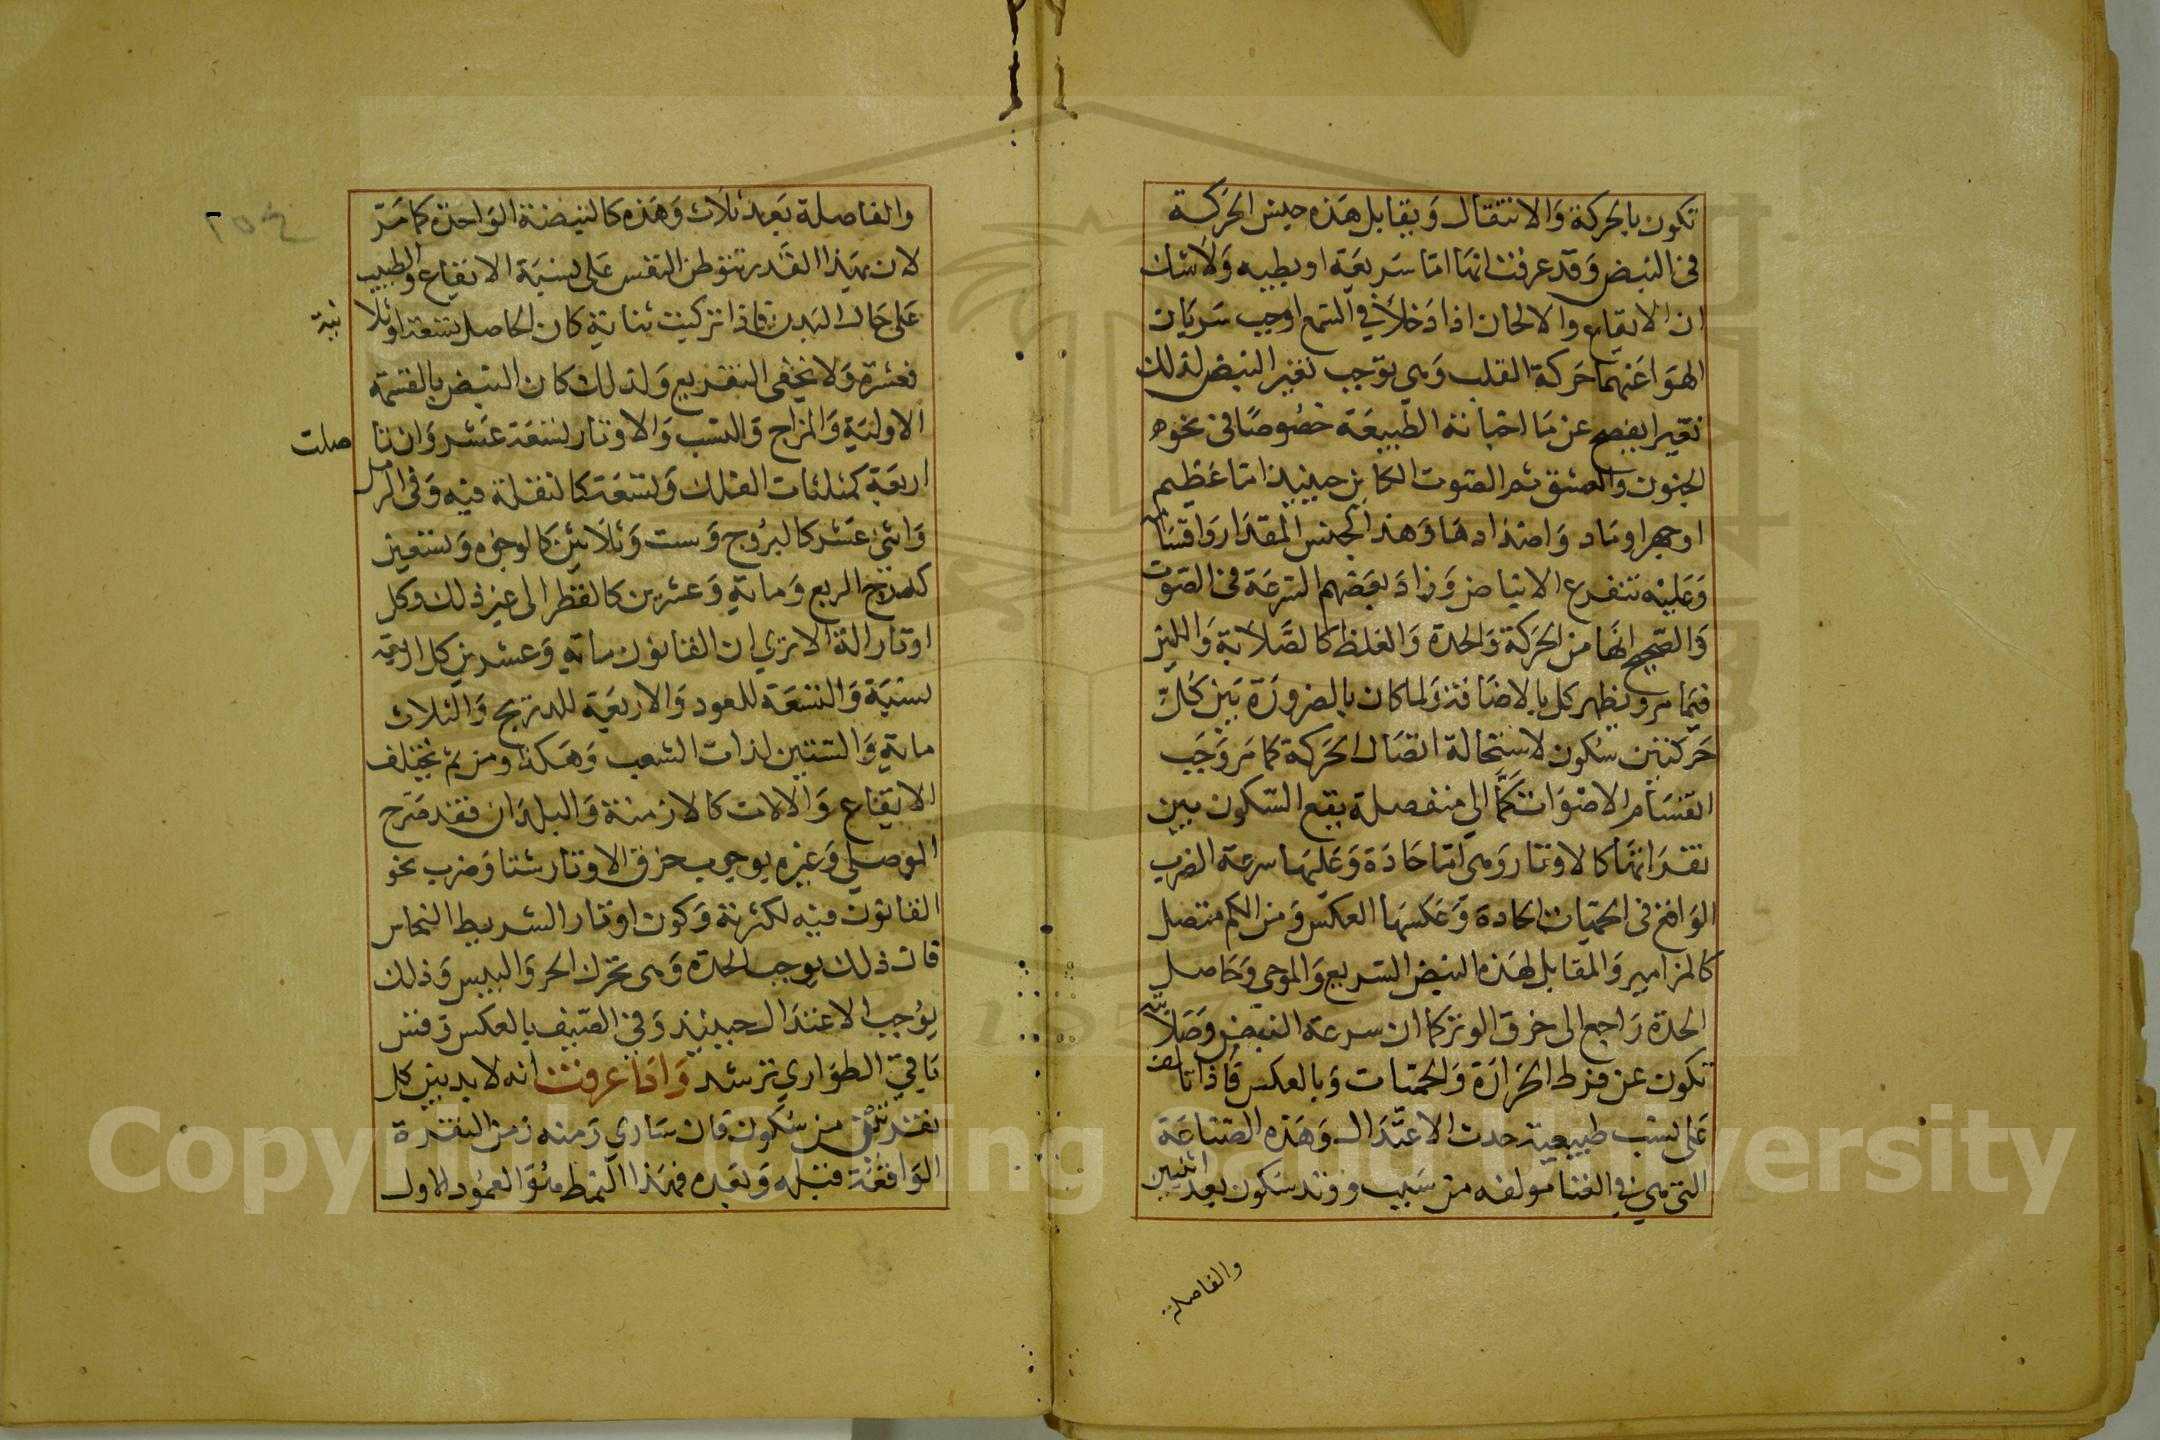 تكون بالحركة والانتقال ويقابل هذه جنس الحركة
في النبض وقد عرفت انها اما سريعة او بطيه ولا شك
ان الايقاع والالحان اذا دخلا في السمع اوجب سريان
الهوا عنهما حركة القلب وهي توجب تغير النبض لذلك
تغيرا يفصح عن ما اخبانه الطبيعة خصوصا في نحو
الجنون والعشق ثم الصوت الكاين حينيذ اما عظيم
او جهر او حاد واضدادها وهذا الجنس المقدار واقسامه
وعليه تتفرع الانباض وزاد بعضهم السرعة في الصوت
والصحيح انها من الحركة والحدة والغلظ كالصلابة واللين
فيما مر ويظهر كل بالاضافة ولما كان بالضرورة بين كل
حركتين سكون لاستحالة اتصال الحركة كما مر وجب
انقسام الاصوات كما الى منفصلة يقع السكون بين
نقراتها كالاوتار وهي اما حادة وعليها سرعة الضرب
الواقع في الحميات الحادة وعكسها العكس ومن الكم متصل
كالمزامير والمقابل لهذه النبض السريع والموجي وحاصل
الحدة راجع الى خرق الوتر كما ان سرعة النبض وصلابته
تكون عن فرط الحرارة والحميات وبالعكس فاذا تالفت
على نسب طبيعية حدث الاعتدال وهذه الصناعة
التي هي في الغنا مولفه من سبب ووتد سكون بعد اثنين
والفاصلة
والفاصلة بعد ثلاث وهذه كالنبضة الواحدة كما مر
لان بهذا القدر تتوطن النفس على بنية الايقاع والطبيب
على حال البدن فاذا تركبت ثنائية كان الحاصل تسعة او ثلا
ثية
فعشرة ولا يخفى التفريع ولذلك كان النبض بالقسمة
الاولية والمزاج والنسب والاوتار تسعة عشر وان تنا
صلت
اربعة كمثلثات الفلك وتسعة كالنقلة فيه وفي الرمل
واثنى عشر كالبروج وست وثلاثين كالوجوه وتسعين
كدرج الربع وماية وعشرين كالقطر الى غير ذلك وكل
اوتار الة الا ترى ان القانون ماية وعشرين كل اربعة
ستية والتسعة للعود والاربعة للدنزيج والثلاث
ماية والستين لذات الشعب وهكذا ومن ثم يختلف
الايقاع والالات كالازمنة والبلدان فقد صرح
الموصلي وغيره بوجوب خرق الاوتار شتا وضرب نحو
القانون فيه لكثرته وكون اوتار الشريط النحاس
فان ذلك يوجب الحدة وهي تحرك الحر واليبس وذلك
يوجب الاعتدال حينيذ وفي الصيف بالعكس وقس
باقي الطواري ترشد واذا عرفت انه لا بد بين كل
نقرتين من سكون فان ساوى زمنه زمن النقرة
الواقعة قبله وبعده فهذا النمط هو العمود الاول
Copyright © King Saud University